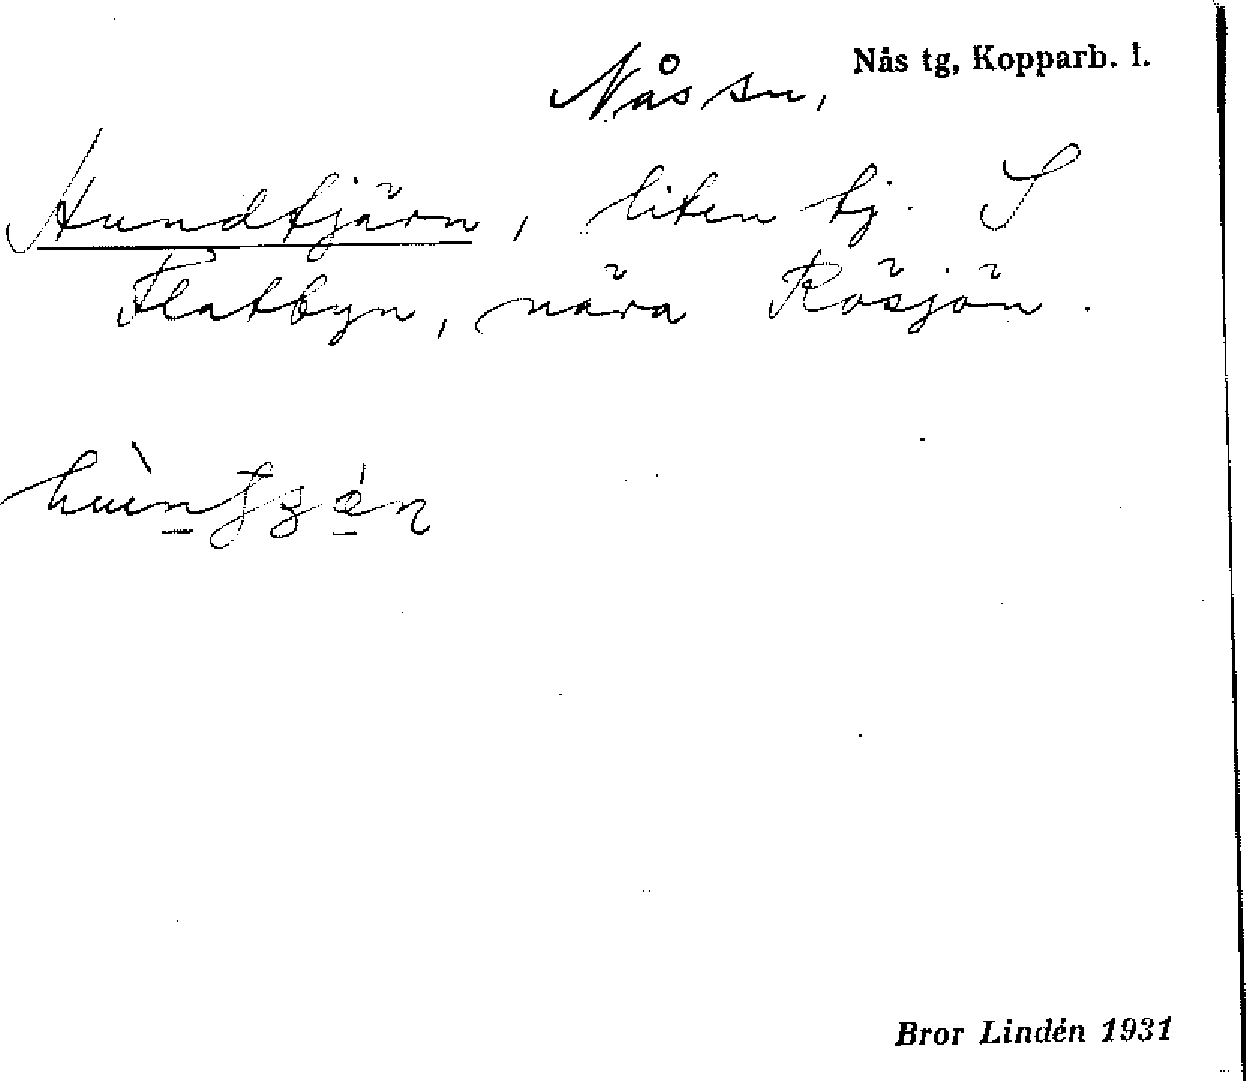 Nås tg, Kopparb. l.
Nås sn,
Hundtjärn, liten tj. S
Flatbyn, nära Rösjön.
Bror Lindén 1931